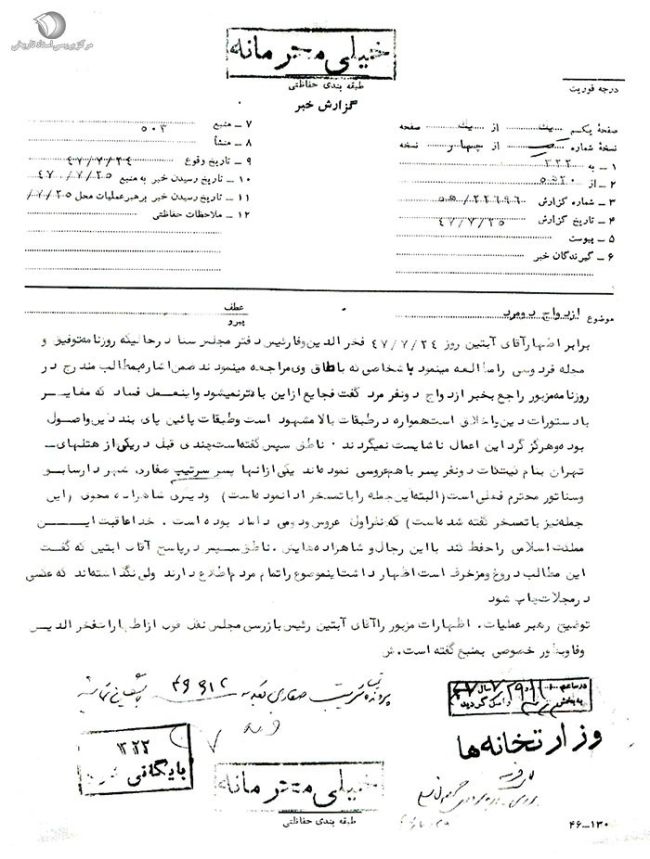 مرکز بررسی اسناد تاریخی
خیلی محرمانه
طبقه بندی حفاظتی
گزارش خبر
درجه فوریت
صفحهٔ یکم یک از یک صفحه
نسخهٔ شماره از چهار نسخه
۱ – به ۳۲۲
۲ – از ۵۵۲۰
۳ – شماره گزارش ۵۵/۲۲۶۹۶
۴ – تاریخ گزارش ۴۷/۷/۲۵
۵ – پیوست
۶ – گیرندگان خبر
۷ – منبع ۵۰۳
۸ – منشأ
۹ – تاریخ وقوع ۴۷/۷/۲۴
۱۰ – تاریخ رسیدن خبر به منبع ۴۷۰/۷/۲۵
۱۱ – تاریخ رسیدن خبر برهبر عملیات محل ۷/۲۵/
۱۲ – ملاحظات حفاظتی
موضوع ازدواج دو مرد
عطف
پیرو
برابر اظهار آقای آبتین روز ۴۷/۷/۲۴ فخر الدین وفا رئیس دفتر مجلس سنا در حالیکه روزنامه توفیق و
مجله فردوسی را مطالعه مینمود با شخاصی که باطاق وی مراجعه مینمودند ضمن اشاره بمطالب مندرج در
روزنامه مزبور راجع بخبر ازدواج دو نفر مرد گفت فجایع از این بالاتر نمیشود و اینعمل فساد که مغایر
با دستورات دین و اخلاق است همواره در طبقات بالا مشهود است و طبقات پائین پای بند دین و اصول
بوده و هرگز گرد این اعمال ناشایست نمیگردند ۰ ناطق سپس گفته است چندی قبل در یکی از هتلهای
تهران بنام دو نفر پسر با هم عروسی نموده اند یکی از آنها پسر سرتیپ صفاری شهردار سابق
و سناتور محترم فعلی است (البته این جمله را با تسخر ادا نموده است) و دیگری شاهزاده محوی (این
جمله نیز با تسخر گفته شده است) که نفر اول عروس و دومی داماد بوده است . خدا عاقبت این
مملکت اسلامی را حفظ کند با این رجال و شاهزاده هایش . ناطق سپس در پاسخ آقای آبتین که گفت
این مطالب دروغ و مزخرف است اظهار داشت اینموضوع را تمام مردم اطلاع دارند ولی نگذاشته اند که عکس
در مجلات چاپ شود
توضیح رهبر عملیات . اظهارات مزبور را آقای آبتین رئیس بازرسی مجلس نقل قول از اظهارات فخر الدین
وفا و بطور خصوصی بمنبع گفته است . ش
پرونده سرتیپ صفاری
در ساعت
به بخش
واصل گردید
وزارتخانه ها
۳۲۲
بایگانی شود
خیلی محرمانه
طبقه بندی حفاظتی
۴۶–۱۳۰